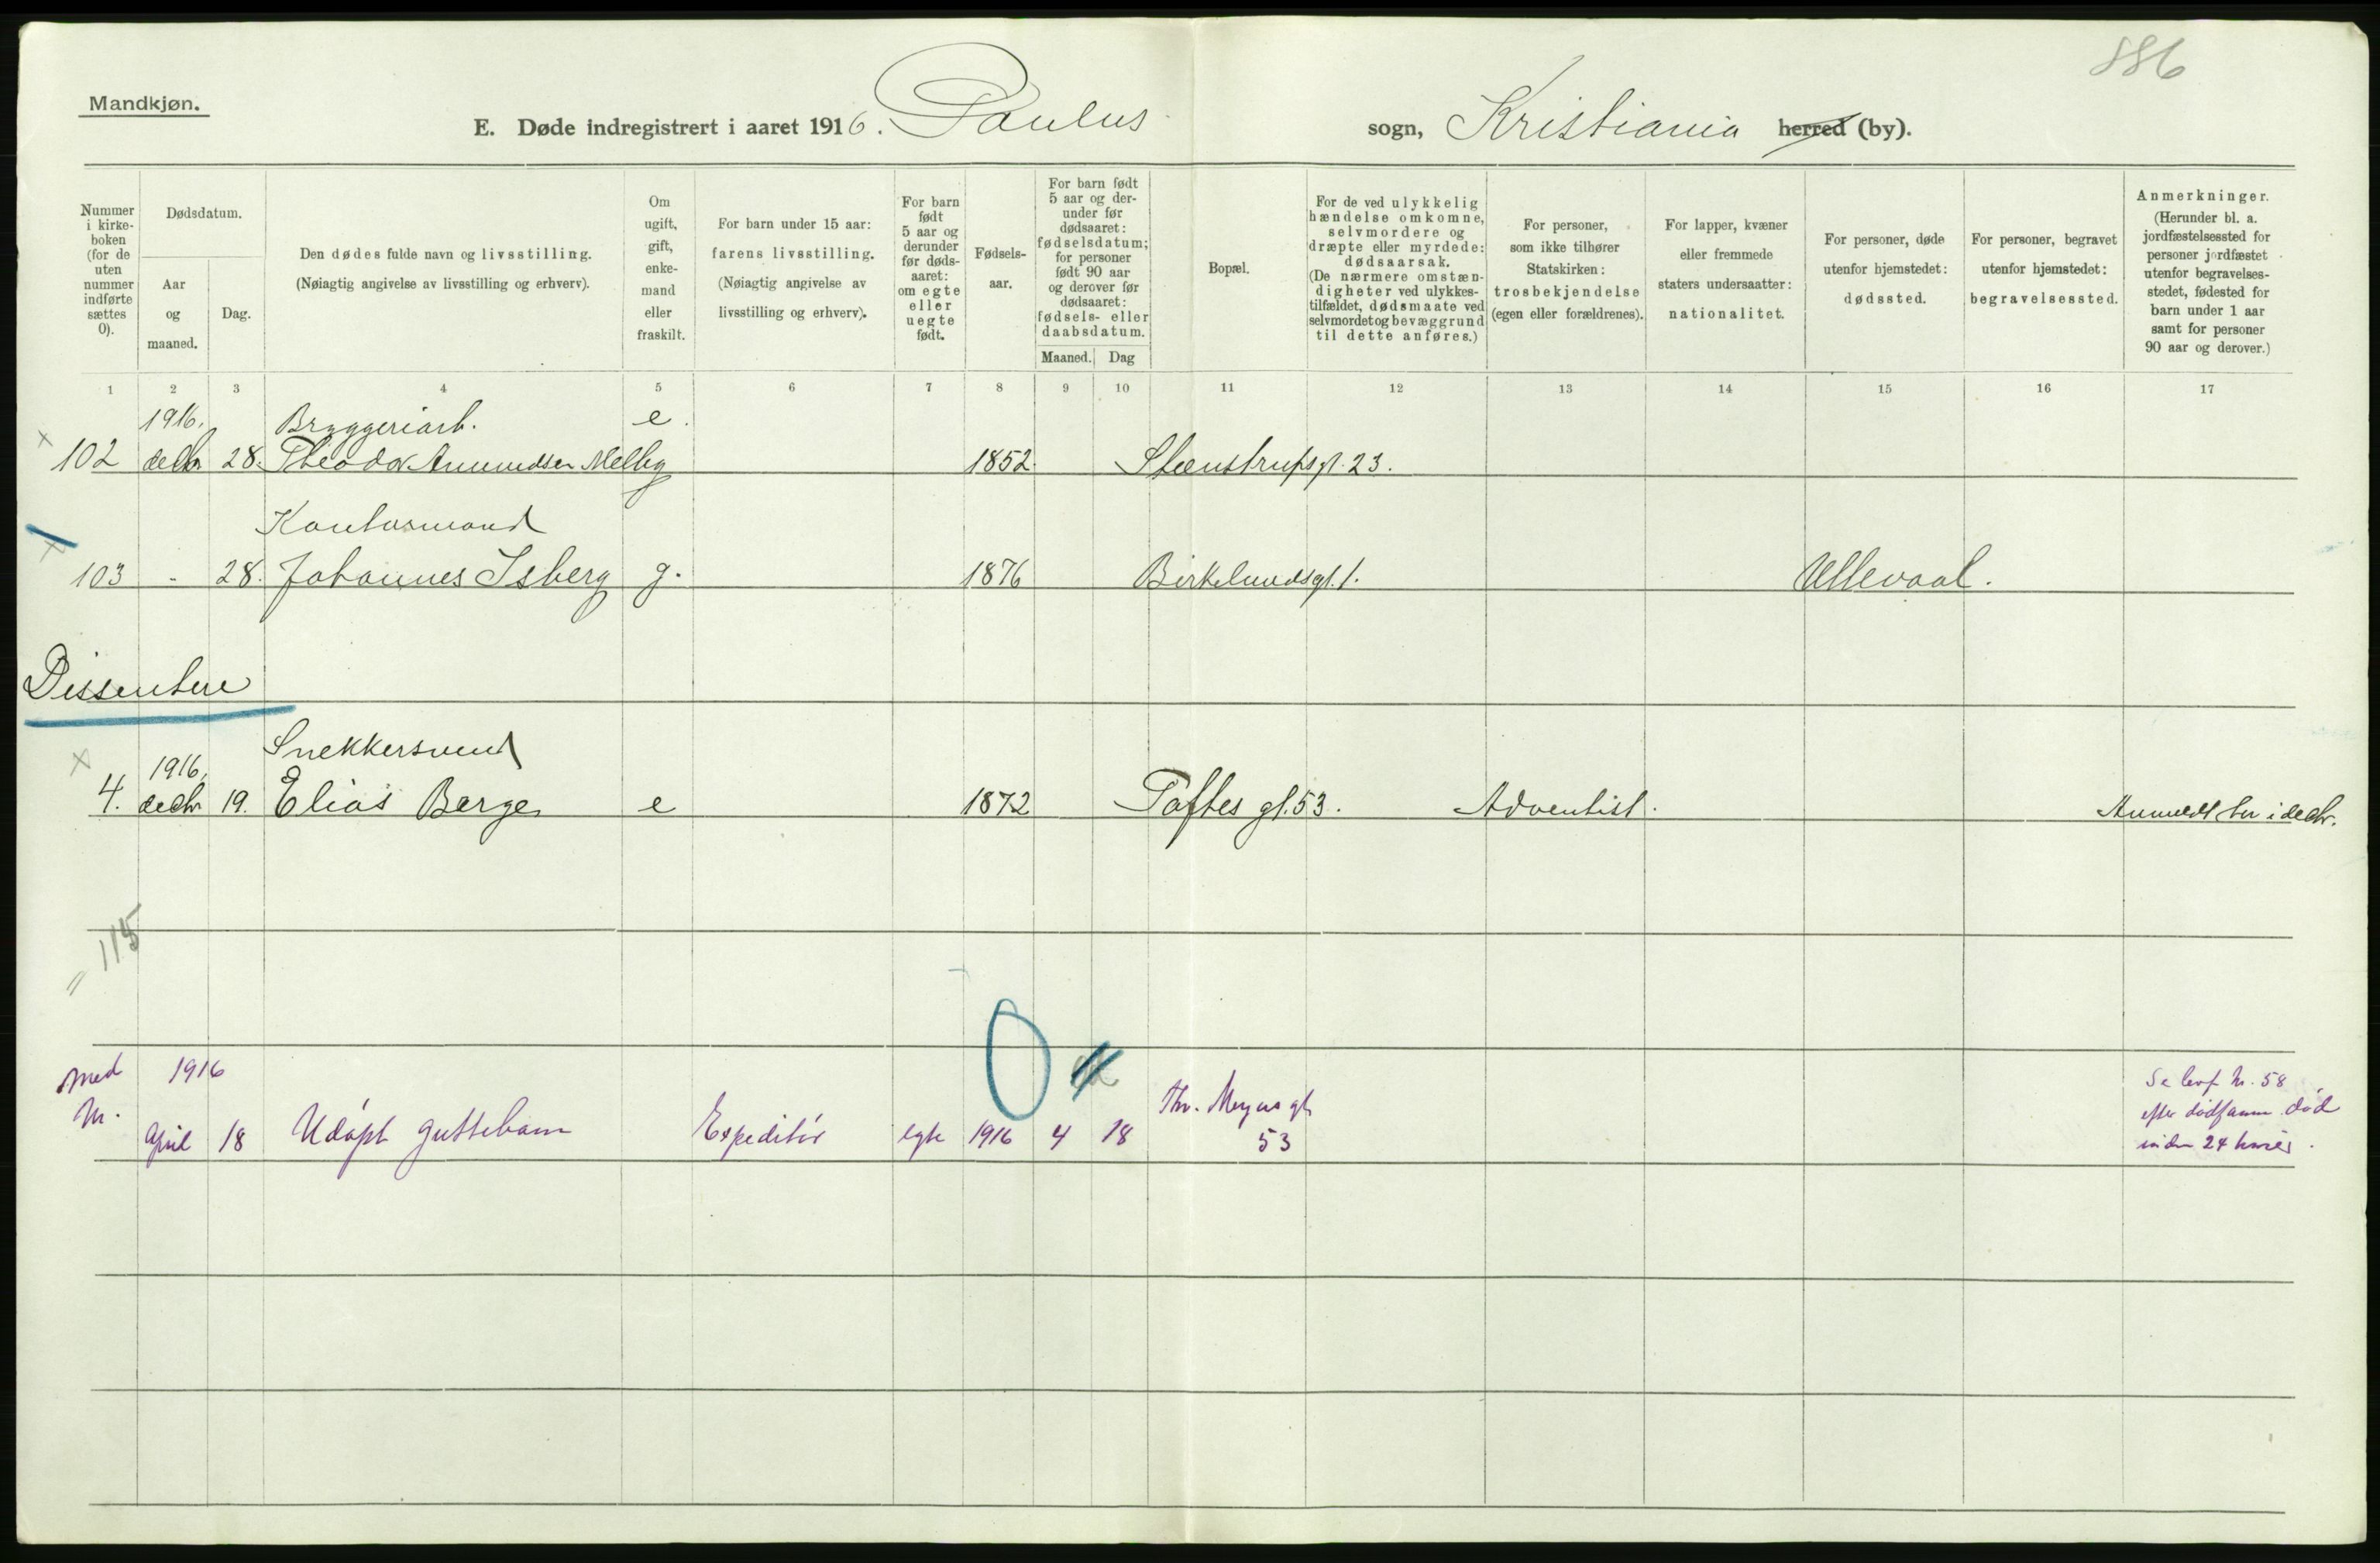 886
Mandkjøn.
E. Døde indregistrert i aaret 1916. Paulus sogn, Kristiania herred (by).
Nummer i kirke-boken (for de uten nummer indførte sættes 0).
Dødsdatum.
Aar og maaned.
Dag.
Den dødes fulde navn og livsstilling.
(Nøiagtig angivelse av livsstilling og erhverv).
Om ugift, gift, enke-mand eller fraskilt.
For barn under 15 aar: farens livsstilling.
(Nøiagtig angivelse av livsstilling og erhverv).
For barn født 5 aar og derunder før døds-aaret: om egte eller uegte født.
Fødsels-aar.
For barn født 5 aar og der-under før dødsaaret: fødselsdatum; for personer født 90 aar og derover før dødsaaret: fødsels- eller daabsdatum.
Maaned. Dag
Bopæl.
For de ved ulykkelig hændelse omkomne, selvmordere og dræpte eller myrdede: dødsaarsak.
(De nærmere omstæn-digheter ved ulykkes-tilfældet, dødsmaate ved selvmordet og bevæggrund til dette anføres.)
For personer, som ikke tilhører Statskirken: trosbekjendelse (egen eller forældrenes).
For lapper, kvæner eller fremmede staters undersaatter: nationalitet.
For personer, døde utenfor hjemstedet: dødssted.
For personer, begravet utenfor hjemstedet: begravelsessted.
Anmerkninger.
(Herunder bl. a. jordfæstelsessted for personer jordfæstet utenfor begravelses-stedet, fødested for barn under 1 aar samt for personer 90 aar og derover.)
1 2 3 4 5 6 7 8 9 10 11 12 13 14 15 16 17
1916. Bryggeriarb. e.
102 decbr 28. Theodor Amundsen Melby 1852. Steenstrupsgt. 23.
Kontormand
103 - 28. Johannes Isberg g. 1876 Birkelundsgt. 1. Ullevaal.
Dissentere
1916, Snekkersvend
4. decbr 19. Elias Berge e 1872 Toftes gt. 53. Adventist. Anmeldt her i decbr.
115
med 1916 Thv. Meyers gt Se levf. Nr. 58
efter dødsanm. død
April 18 Udøpt guttebarn Expeditør egte 1916 4 18 53 inden 24 timer.